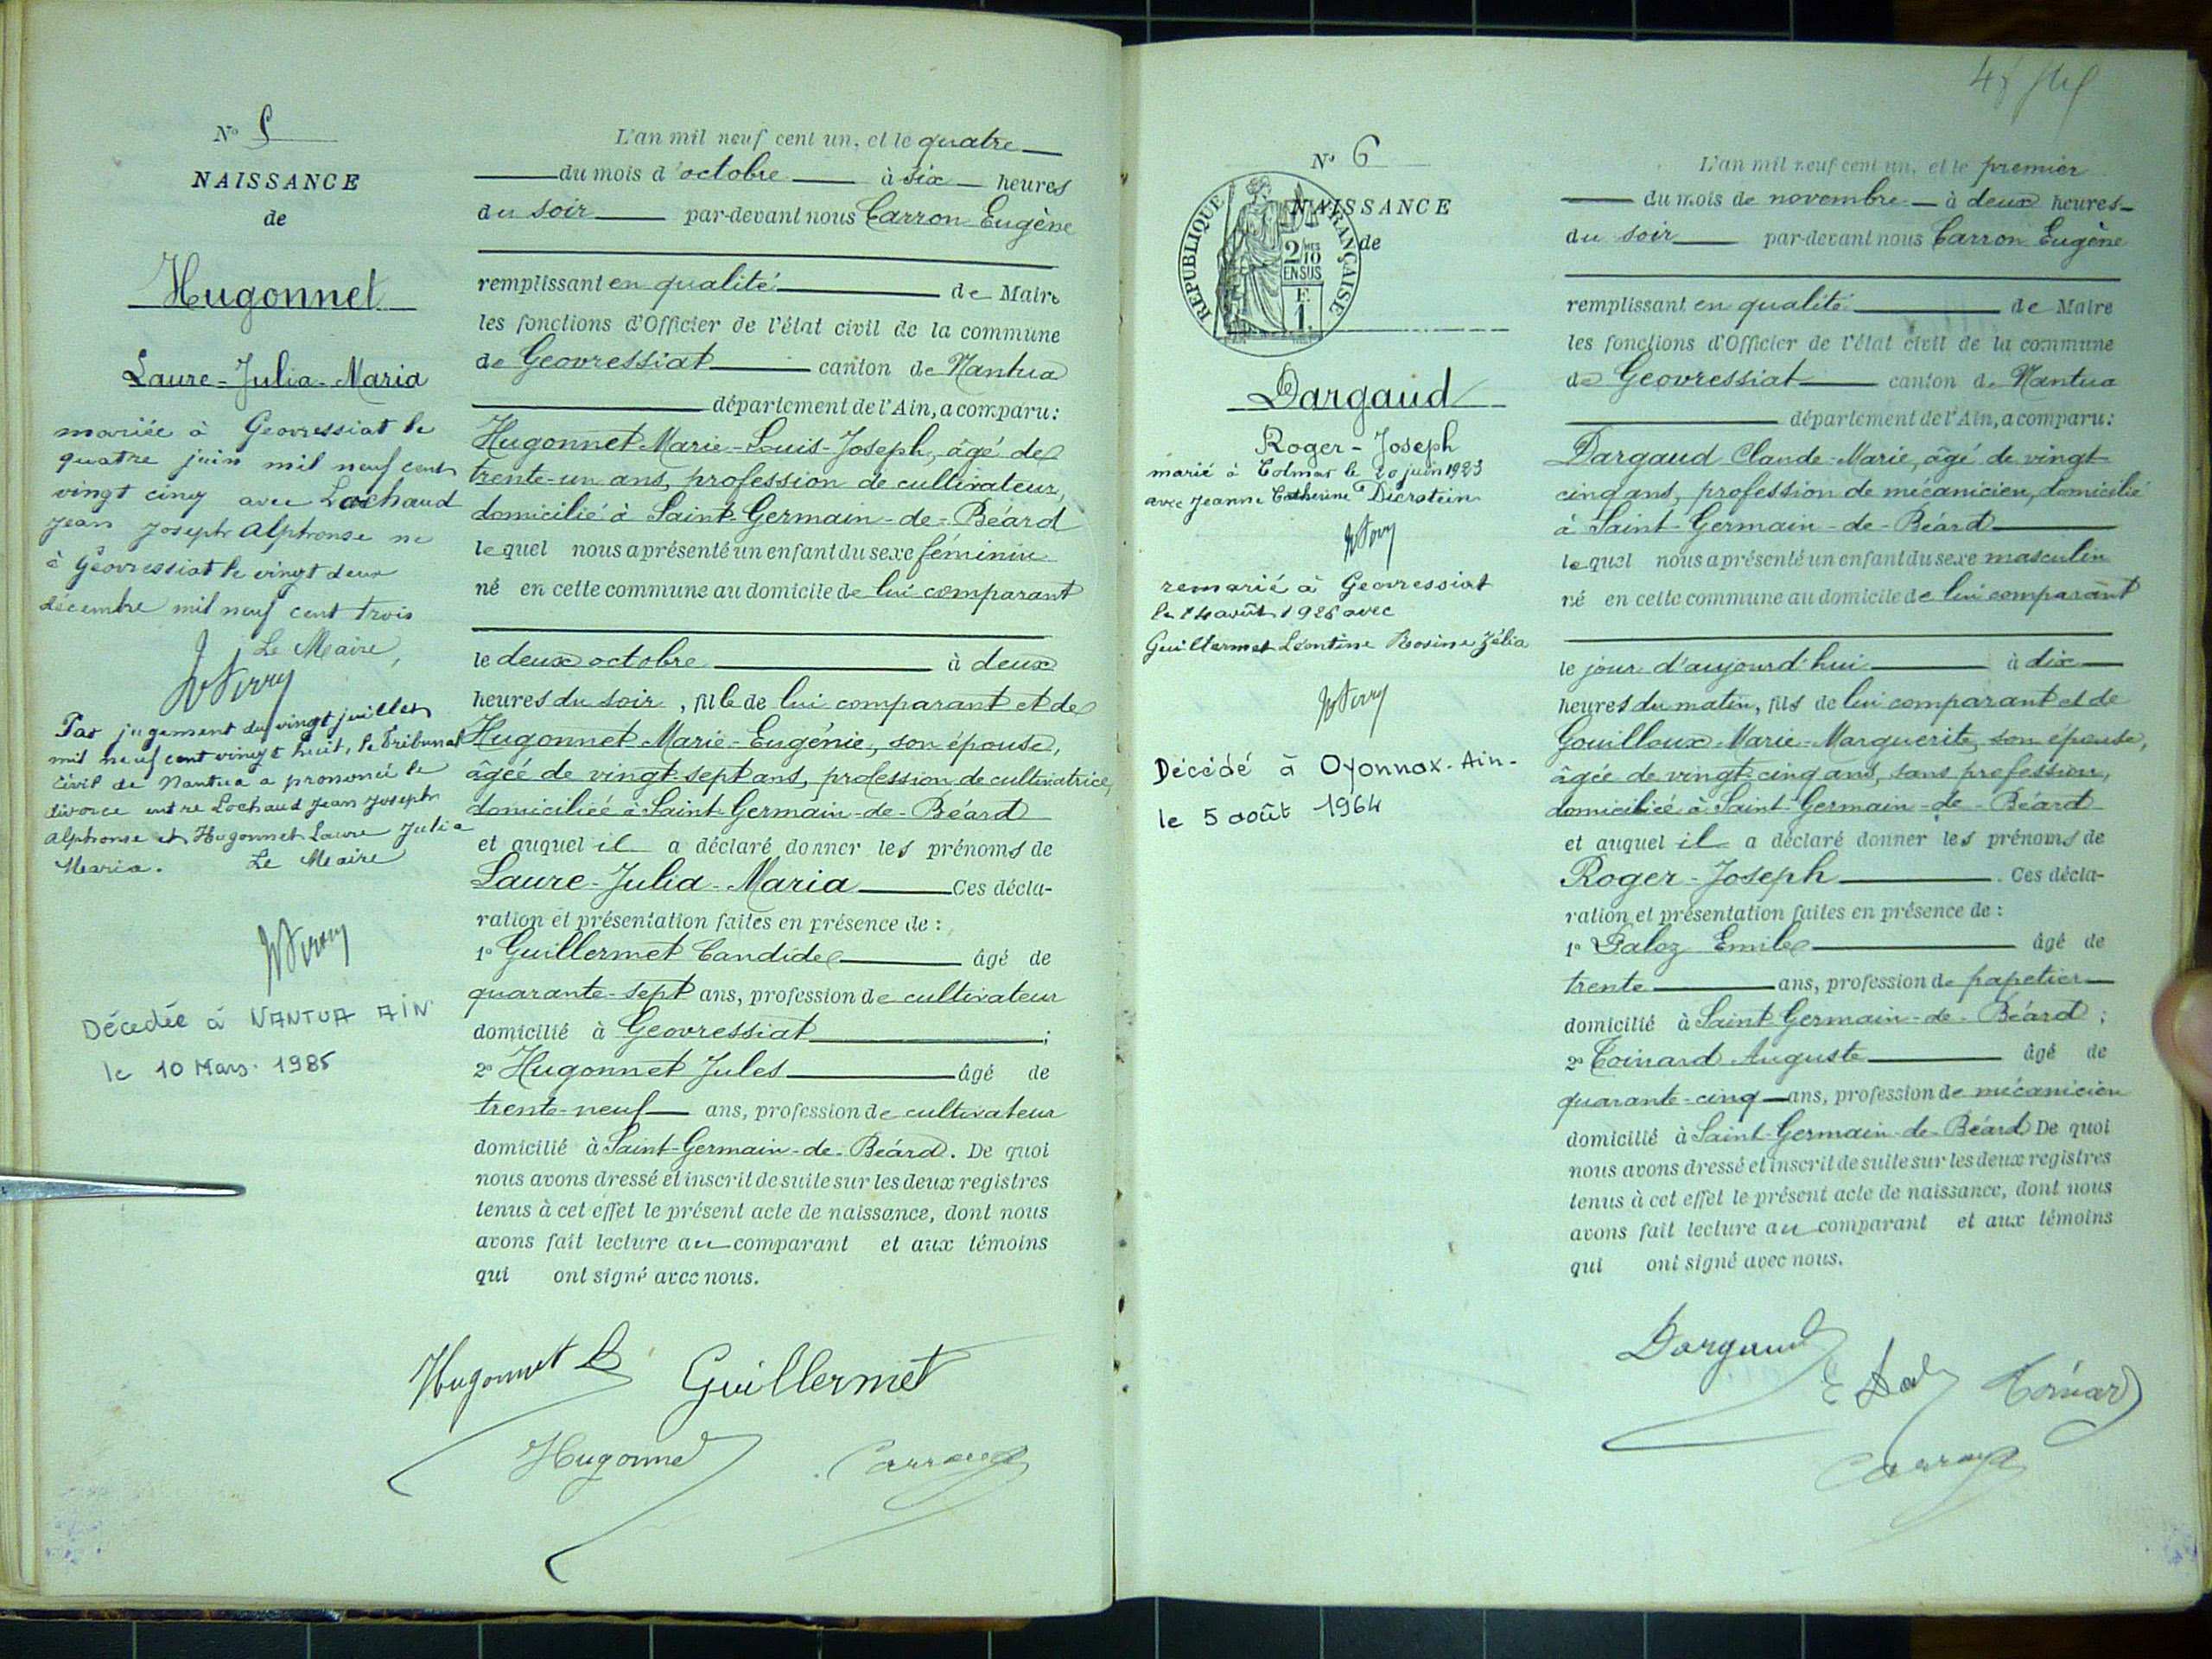 N° 5
NAISSANCE
de
Hugonnet
Laure-Julia-Maria
mariée à Geovressiat le
quatre juin mil neuf cent
vingt cinq avec Lochaud
Jean Joseph Alphonse né
à Géovressiat le vingt deux
décembre mil neuf cent trois
Le Maire,
Par jugement du vingt juillet
mil neuf cent vingt huit, le Tribunal
Civil de Nantua a prononcé le
divorce entre Lochaud Jean Joseph
Alphonse et Hugonnet Laure Julia
Maria. Le Maire
Décédée à NANTUA AIN
le 10 Mars 1985
L'an mil neuf cent un, et le quatre
du mois d'octobre à six heures
du soir par-devant nous Carron Eugène
remplissant en qualité de Maire
les fonctions d'Officier de l'état civil de la commune
de Geovressiat canton de Nantua
département de l'Ain, a comparu:
Hugonnet Marie-Louis-Joseph, âgé de
trente-un ans, profession de cultivateur,
domicilié à Saint-Germain-de-Béard
lequel nous a présenté un enfant du sexe féminin
né en cette commune au domicile de lui comparant
le deux octobre à deux
heures du soir, fille de lui comparant et de
Hugonnet Marie-Eugénie, son épouse,
âgée de vingt-sept ans, profession de cultivatrice,
domiciliée à Saint-Germain-de-Béard
et auquel il a déclaré donner les prénoms de
Laure-Julia-Maria Ces décla-
ration et présentation faites en présence de :
1° Guillermet Candide âgé de
quarante-sept ans, profession de cultivateur
domicilié à Geovressiat ;
2° Hugonnet Jules âgé de
trente-neuf ans, profession de cultivateur
domicilié à Saint-Germain-de-Béard. De quoi
nous avons dressé et inscrit de suite sur les deux registres
tenus à cet effet le présent acte de naissance, dont nous
avons fait lecture au comparant et aux témoins
qui ont signé avec nous.
Hugonnet L Guillermet
Hugonnet Carron
N° 6
NAISSANCE
de
REPUBLIQUE FRANÇAISE
2/10
EN SUS
F.
1.
Dargaud
Roger-Joseph
marié à Colmar le 20 juin 1923
avec Jeanne Catherine Dierstein
remarié à Geovressiat
le 14 août 1928 avec
Guillermet Léontine Rosine Zélia
Décédé à Oyonnax-Ain-
le 5 août 1964
L'an mil neuf cent un, et le premier
du mois de novembre à deux heures
du soir par-devant nous Carron Eugène
remplissant en qualité de Maire
les fonctions d'Officier de l'état civil de la commune
de Geovressiat canton de Nantua
département de l'Ain, a comparu:
Dargaud Claude-Marie, âgé de vingt-
cinq ans, profession de mécanicien, domicilié
à Saint-Germain-de-Béard
lequel nous a présenté un enfant du sexe masculin
né en cette commune au domicile de lui comparant
le jour d'aujourd'hui à dix
heures du matin, fils de lui comparant et de
Gouilloux Marie-Marguerite, son épouse,
âgée de vingt-cinq ans, sans profession,
domiciliée à Saint-Germain-de-Béard
et auquel il a déclaré donner les prénoms de
Roger-Joseph Ces décla-
ration et présentation faites en présence de :
1° Daloz Emile âgé de
trente ans, profession de papetier
domicilié à Saint-Germain-de-Béard ;
2° Toinard Auguste âgé de
quarante-cinq ans, profession de mécanicien
domicilié à Saint-Germain-de-Béard De quoi
nous avons dressé et inscrit de suite sur les deux registres
tenus à cet effet le présent acte de naissance, dont nous
avons fait lecture au comparant et aux témoins
qui ont signé avec nous.
Dargaud
Toinard
Carron